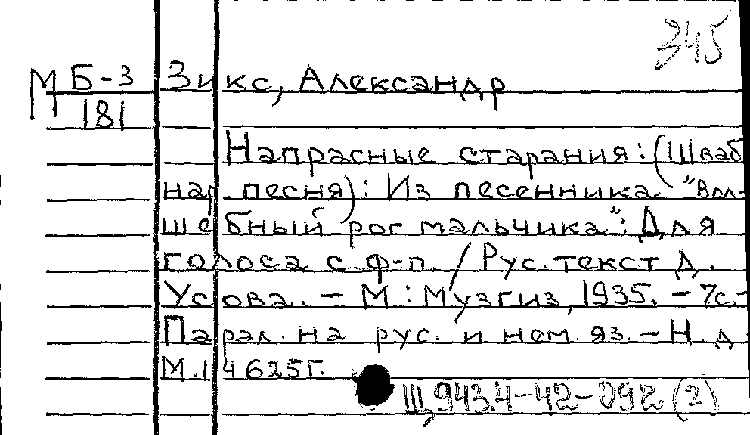 345
М Б-3 Зикс, Александр
181
Напрасные старания: (Шваб.
нар. песня): Из песенника "Вол-
шебный рог мальчика": Для
голоса с ф-п. / Рус. текст Д.
Усова. - М.: Музгиз, 1935. - 7с.-
Парал. на рус. и нем. яз. - Н. д.
М. 14625г.
Щ943.4-42-092 (2)